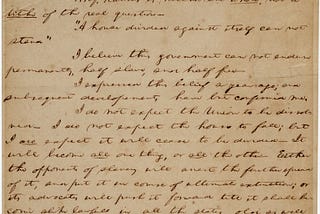 tithe of the real question.
"A house divided against itself can not
stand"
I believe this government can not endure
permanently, half slave, and half free.
I expressed this belief a year ago; and
subsequent developments have but confirmed me.
I do not expect the Union to be dissol-
ved. I do not expect the house to fall; but
I do expect it will cease to be divided. It
will become all one thing, or all the other. Either
the opponents of slavery will arrest the further spread
of it, and put it in course of ultimate extinction; or
its advocates will push it forward till it shall be-
come alike lawful in all the states, old as well